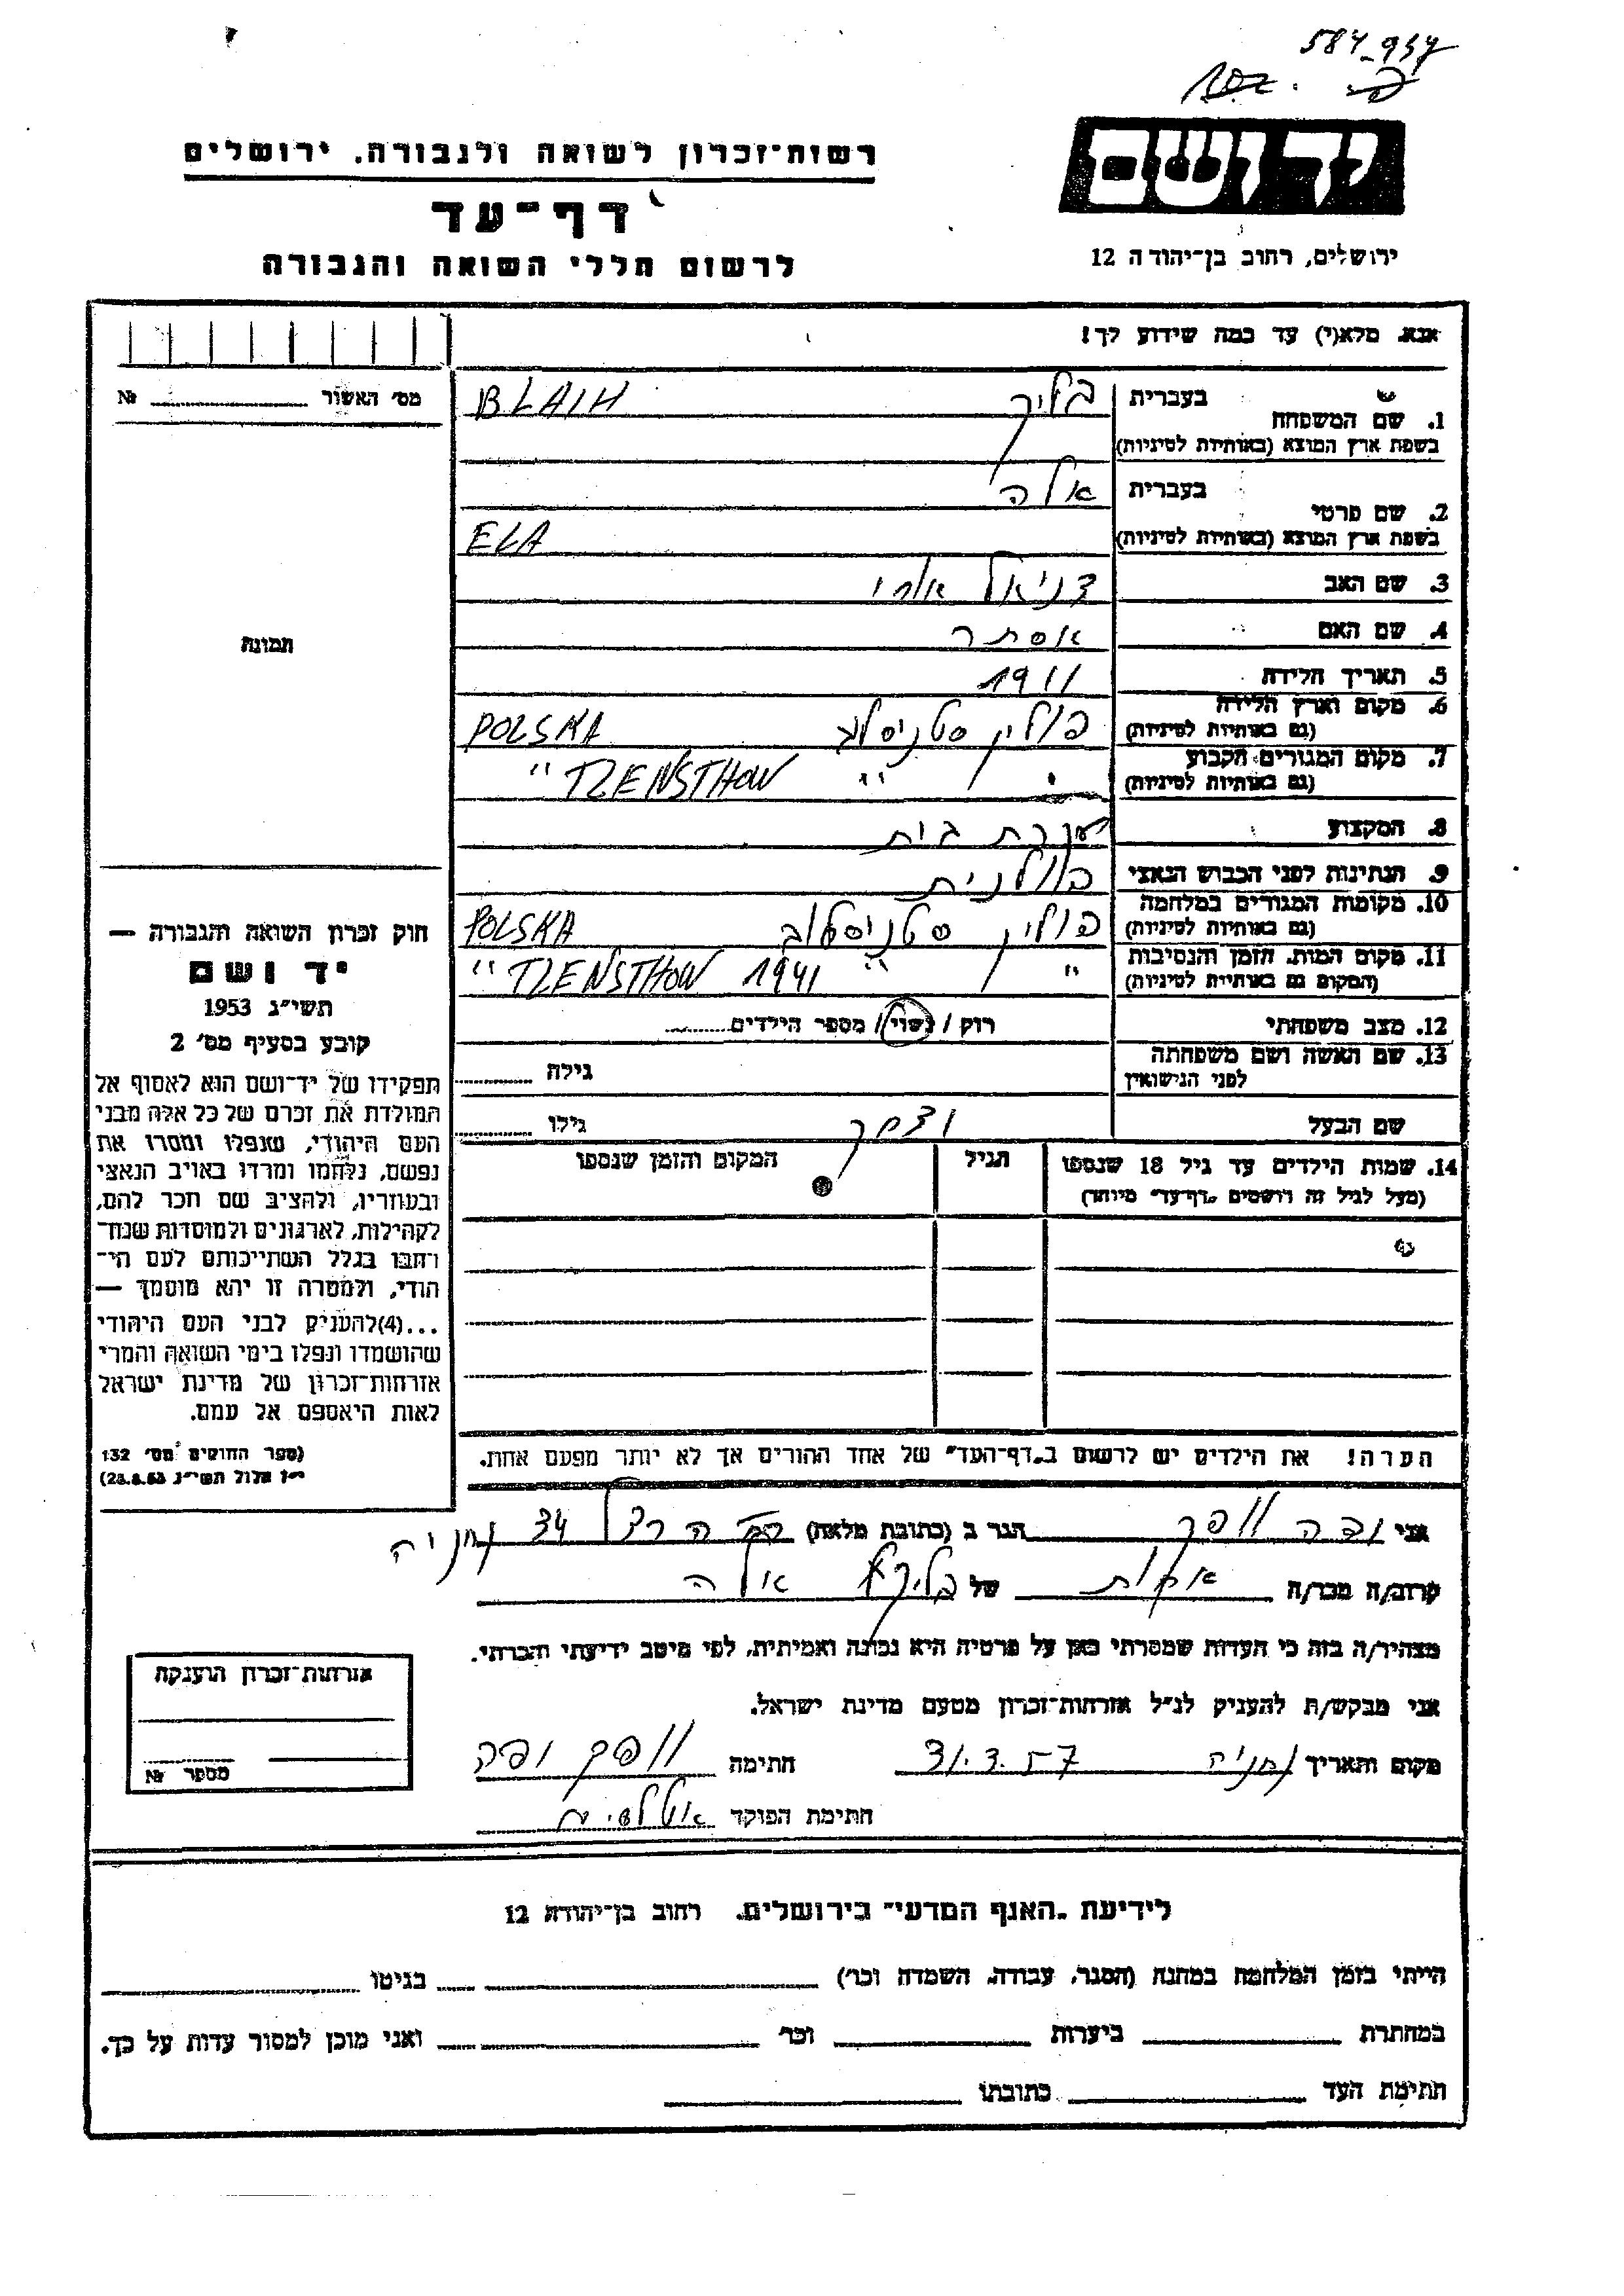 584-934
רשות־זכרון לשואה ולגבורה, ירושלים
יד ושם
דף־עד
ירושלים, רחוב בן־יהודה 12
לרשום חללי השואה והגבורה
אנא, מלא(י) עד כמה שידוע לך!
מס' האשור № 
1. שם המשפחה
בעברית בליך
בשפת ארץ המוצא (באותיות לטיניות) BLAIH
2. שם פרטי
בעברית אלה
בשפת ארץ המוצא (באותיות לטיניות) ELA
3. שם האב דניאל ארי
4. שם האם אסתר
תמונה
5. תאריך הלידה 1911
6. מקום וארץ הלידה פולין סטניסלב POLSKA
(גם באותיות לטיניות)
7. מקום המגורים הקבוע " " TZENSTHOW "
(גם באותיות לטיניות)
8. המקצוע עקרת בית
9. הנתינות לפני הכבוש הנאצי פולנית
10. מקומות המגורים במלחמה פולין סטניסלוב POLSKA
(גם באותיות לטיניות)
11. מקום המות, הזמן והנסיבות " " 1941 TZENSTHOW "
(המקום גם באותיות לטיניות)
12. מצב משפחתי רוק / נשוי / מספר הילדים
13. שם האשה ושם משפחתה לפני הנישואין גילה
שם הבעל גילו
14. שמות הילדים עד גיל 18 שנספו
(מעל לגיל זה רושמים "דף־עד" מיוחד)
הגיל
המקום והזמן שנספו
חוק זכרון השואה והגבורה —
יד ושם
תשי"ג 1953
קובע בסעיף מס' 2
תפקידו של יד־ושם הוא לאסוף אל
המולדת את זכרם של כל אלה מבני
העם היהודי, שנפלו ומסרו את
נפשם, נלחמו ומרדו באויב הנאצי
ובעוזריו, ולהציב שם וזכר להם,
לקהילות, לארגונים ולמוסדות שנח־
רבו בגלל השתייכותם לעם הי־
הודי, ולמטרה זו יהא מוסמך —
...(4)להעניק לבני העם היהודי
שהושמדו ונפלו בימי השואה והמרי
אזרחות־זכרון של מדינת ישראל
לאות היאספם אל עמם.
(ספר החוקים מס' 132
י"ז אלול תשי"ג 28.8.53)
הערה! את הילדים יש לרשום ב"דף־העד" של אחד ההורים אך לא יותר מפעם אחת.
אני הגר ב (כתובת מלאה) הרצל 34 נתניה
קרוב/ה מכר/ה אחות של בליך אלה
מצהיר/ה בזה כי העדות שמסרתי כאן על פרטיה היא נכונה ואמיתית, לפי מיטב ידיעתי והכרתי.
אני מבקש/ת להעניק לנ"ל אזרחות־זכרון מטעם מדינת ישראל.
מקום ותאריך נתניה 31.3.57 חתימה
חתימת הפוקד
אזרחות־זכרון הוענקה
מספר №
לידיעת "האגף המדעי" בירושלים, רחוב בן־יהודה 12
הייתי בזמן המלחמה במחנה (הסגר, עבודה, השמדה וכו') בגיטו
במחתרת ביערות וכו' ואני מוכן למסור עדות על כך.
חתימת העד כתובתו